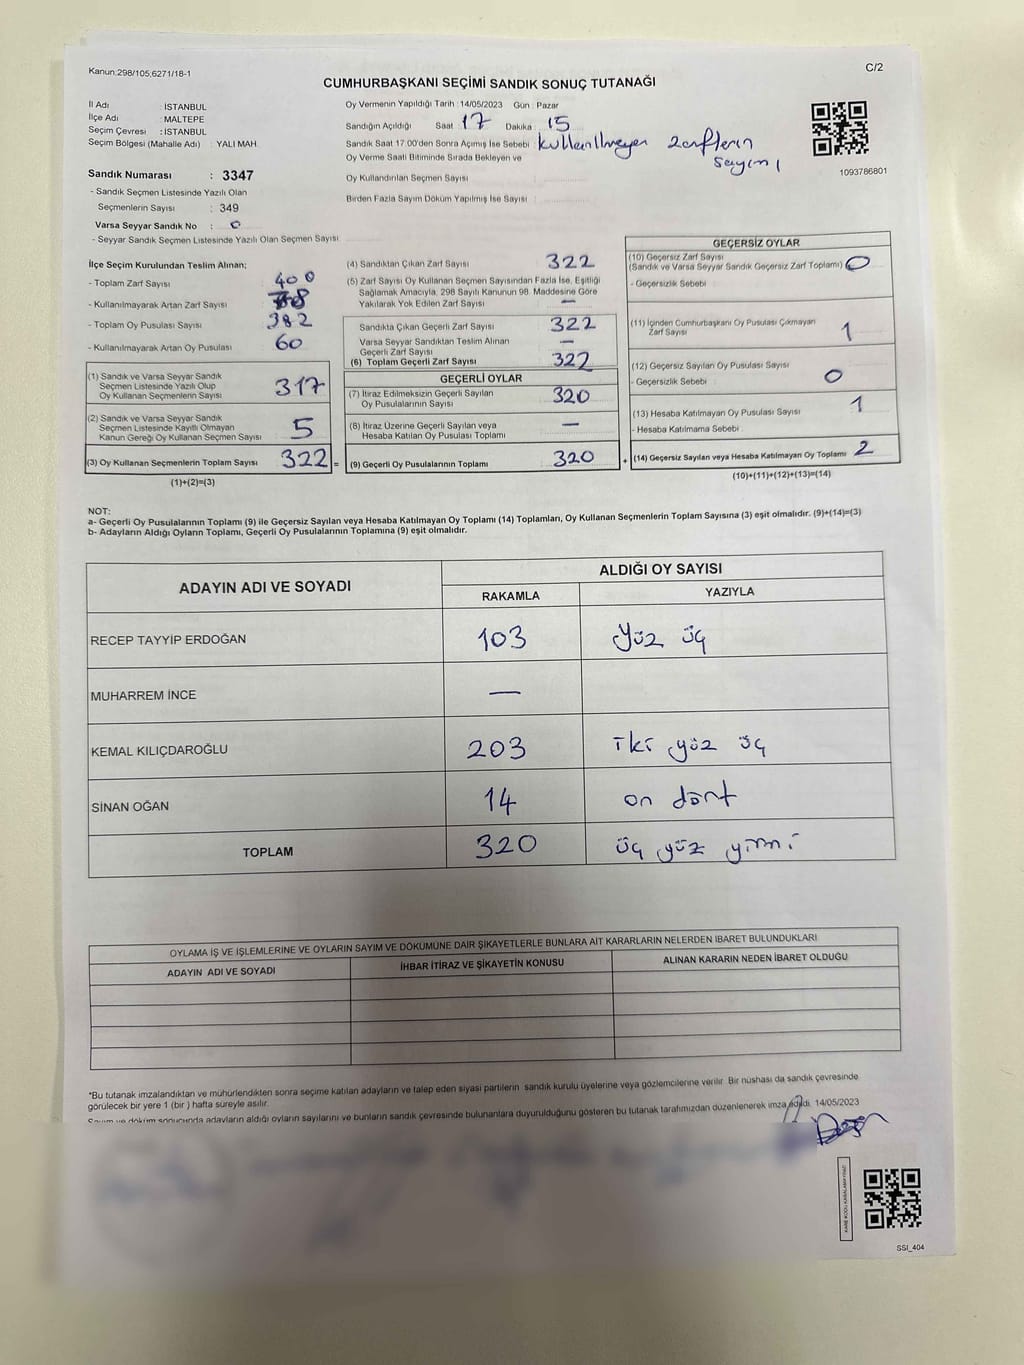 Kanun:298/105,6271/18-1
C/2
CUMHURBAŞKANI SEÇİMİ SANDIK SONUÇ TUTANAĞI
İl Adı : İSTANBUL
İlçe Adı : MALTEPE
Seçim Çevresi : İSTANBUL
Seçim Bölgesi (Mahalle Adı) : YALI MAH.
Oy Vermenin Yapıldığı Tarih : 14/05/2023 Gün : Pazar
Sandığın Açıldığı Saat : 17 Dakika : 15
Sandık Saat 17:00'den Sonra Açımış İse Sebebi kullanılmayan zarfların
sayımı
Oy Verme Saati Bitiminde Sırada Bekleyen ve
Oy Kullandırılan Seçmen Sayısı
Birden Fazla Sayım Döküm Yapılmış İse Sayısı
1093786801
Sandık Numarası : 3347
- Sandık Seçmen Listesinde Yazılı Olan
Seçmenlerin Sayısı : 349
Varsa Seyyar Sandık No : 0
- Seyyar Sandık Seçmen Listesinde Yazılı Olan Seçmen Sayısı
İlçe Seçim Kurulundan Teslim Alınan;
- Toplam Zarf Sayısı 400
- Kullanılmayarak Artan Zarf Sayısı
- Toplam Oy Pusulası Sayısı 382
- Kullanılmayarak Artan Oy Pusulası 60
(1) Sandık ve Varsa Seyyar Sandık
Seçmen Listesinde Yazılı Olup
Oy Kullanan Seçmenlerin Sayısı 317
(2) Sandık ve Varsa Seyyar Sandık
Seçmen Listesinde Kayıtlı Olmayan
Kanun Gereği Oy Kullanan Seçmen Sayısı 5
(3) Oy Kullanan Seçmenlerin Toplam Sayısı 322 =
(1)+(2)=(3)
(4) Sandıktan Çıkan Zarf Sayısı 322
(5) Zarf Sayısı Oy Kullanan Seçmen Sayısından Fazla İse, Eşitliği
Sağlamak Amacıyla, 298 Sayılı Kanunun 98. Maddesine Göre
Yakılarak Yok Edilen Zarf Sayısı —
Sandıkta Çıkan Geçerli Zarf Sayısı 322
Varsa Seyyar Sandıktan Teslim Alınan
Geçerli Zarf Sayısı —
(6) Toplam Geçerli Zarf Sayısı 322
GEÇERLİ OYLAR
(7) İtiraz Edilmeksizin Geçerli Sayılan
Oy Pusulalarının Sayısı 320
(8) İtiraz Üzerine Geçerli Sayılan veya
Hesaba Katılan Oy Pusulası Toplamı —
(9) Geçerli Oy Pusulalarının Toplamı 320 +
GEÇERSİZ OYLAR
(10) Geçersiz Zarf Sayısı
(Sandık ve Varsa Seyyar Sandık Geçersiz Zarf Toplamı) 0
- Geçersizlik Sebebi :
(11) İçinden Cumhurbaşkanı Oy Pusulası Çıkmayan
Zarf Sayısı 1
(12) Geçersiz Sayılan Oy Pusulası Sayısı
- Geçersizlik Sebebi : 0
(13) Hesaba Katılmayan Oy Pusulası Sayısı 1
- Hesaba Katılmama Sebebi :
(14) Geçersiz Sayılan veya Hesaba Katılmayan Oy Toplamı 2
(10)+(11)+(12)+(13)=(14)
NOT:
a- Geçerli Oy Pusulalarının Toplamı (9) ile Geçersiz Sayılan veya Hesaba Katılmayan Oy Toplamı (14) Toplamları, Oy Kullanan Seçmenlerin Toplam Sayısına (3) eşit olmalıdır. (9)+(14)=(3)
b- Adayların Aldığı Oyların Toplamı, Geçerli Oy Pusulalarının Toplamına (9) eşit olmalıdır.
ADAYIN ADI VE SOYADI
ALDIĞI OY SAYISI
RAKAMLA YAZIYLA
RECEP TAYYİP ERDOĞAN 103 yüz üç
MUHARREM İNCE —
KEMAL KILIÇDAROĞLU 203 iki yüz üç
SİNAN OĞAN 14 on dört
TOPLAM 320 üç yüz yirmi
OYLAMA İŞ VE İŞLEMLERİNE VE OYLARIN SAYIM VE DÖKÜMÜNE DAİR ŞİKAYETLERLE BUNLARA AİT KARARLARIN NELERDEN İBARET BULUNDUKLARI
ADAYIN ADI VE SOYADI İHBAR İTİRAZ VE ŞİKAYETİN KONUSU ALINAN KARARIN NEDEN İBARET OLDUĞU
*Bu tutanak imzalandıktan ve mühürlendikten sonra seçime katılan adayların ve talep eden siyasi partilerin sandık kurulu üyelerine veya gözlemcilerine verilir. Bir nüshası da sandık çevresinde
görülecek bir yere 1 (bir ) hafta süreyle asılır.
Sayım ve döküm sonucunda adayların aldığı oyların sayılarını ve bunların sandık çevresinde bulunanlara duyurulduğunu gösteren bu tutanak tarafımızdan düzenlenerek imza edildi. 14/05/2023
SSI_404